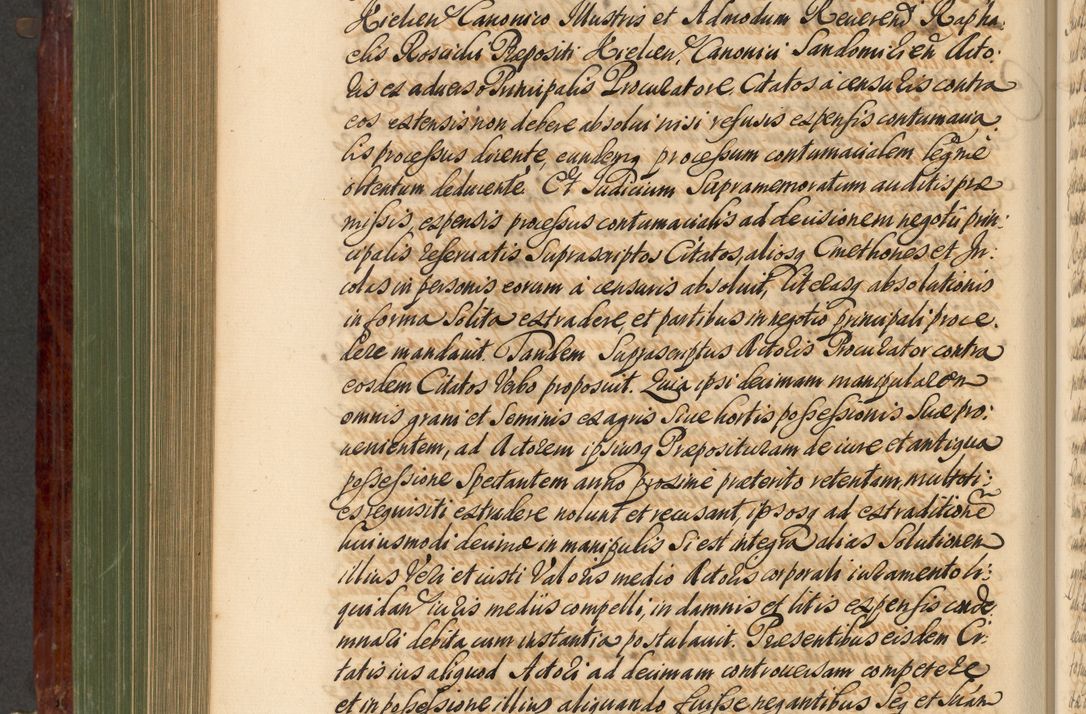 Kielcen Canonico Illustris et Admodum Reuerend Rapha
elis Rosciclii Præpositi Kielcen, Canonici Sandomirien Acto:
ris ex aduerso Principalis Procuratore, Citatos a censuris contra
eos extensis non debere absolui nisi refusis expensis contumacia
lis processus docente, eundemq processum contumacialem legme
obtentum deducente. Et Iudicium Supramemoratum auditis præ
missis, expensis processus contumacialis ad decisionem negotii prin:
cipalis reseruatis Suprascriptos Citatos, aliosq Cmethones et In:
colas in personis eorum a censuris absoluit, literasq absolutionis
in forma Solita extradere, et partibus in negotio principali proce
dere mandauit. Tandem Suprascriptus Actoris Procurator contra
eosdem Citatos Verbo proposuit. Quia ipsi decimam manipularem
omnis grani et Seminis ex agris Siue hortis possessionis Suæ pro:
uenientem, ad Actorem ipsiusq Præposituram de iure et antiqua
possessione Spectantem anno proxime præterito retentam, multoti:
es requisiti extradere nolunt et recusant, ipsosq ad extraditionē
huiusmodi decimæ in manipulis Si est integra alias Solutionem
illius Veri et iusti Valoris medio Actoris corporali iuramento li:
quidan iuris mediis compelli, in damnis et litis expensis conde
mnari debita cum instantia postulauit. Præsentibus eisdem Ci
tatis ius aliquod Actori ad decimam controuersam competere
et in possessione illius aliquando fuisse negantibus Seq et Suam